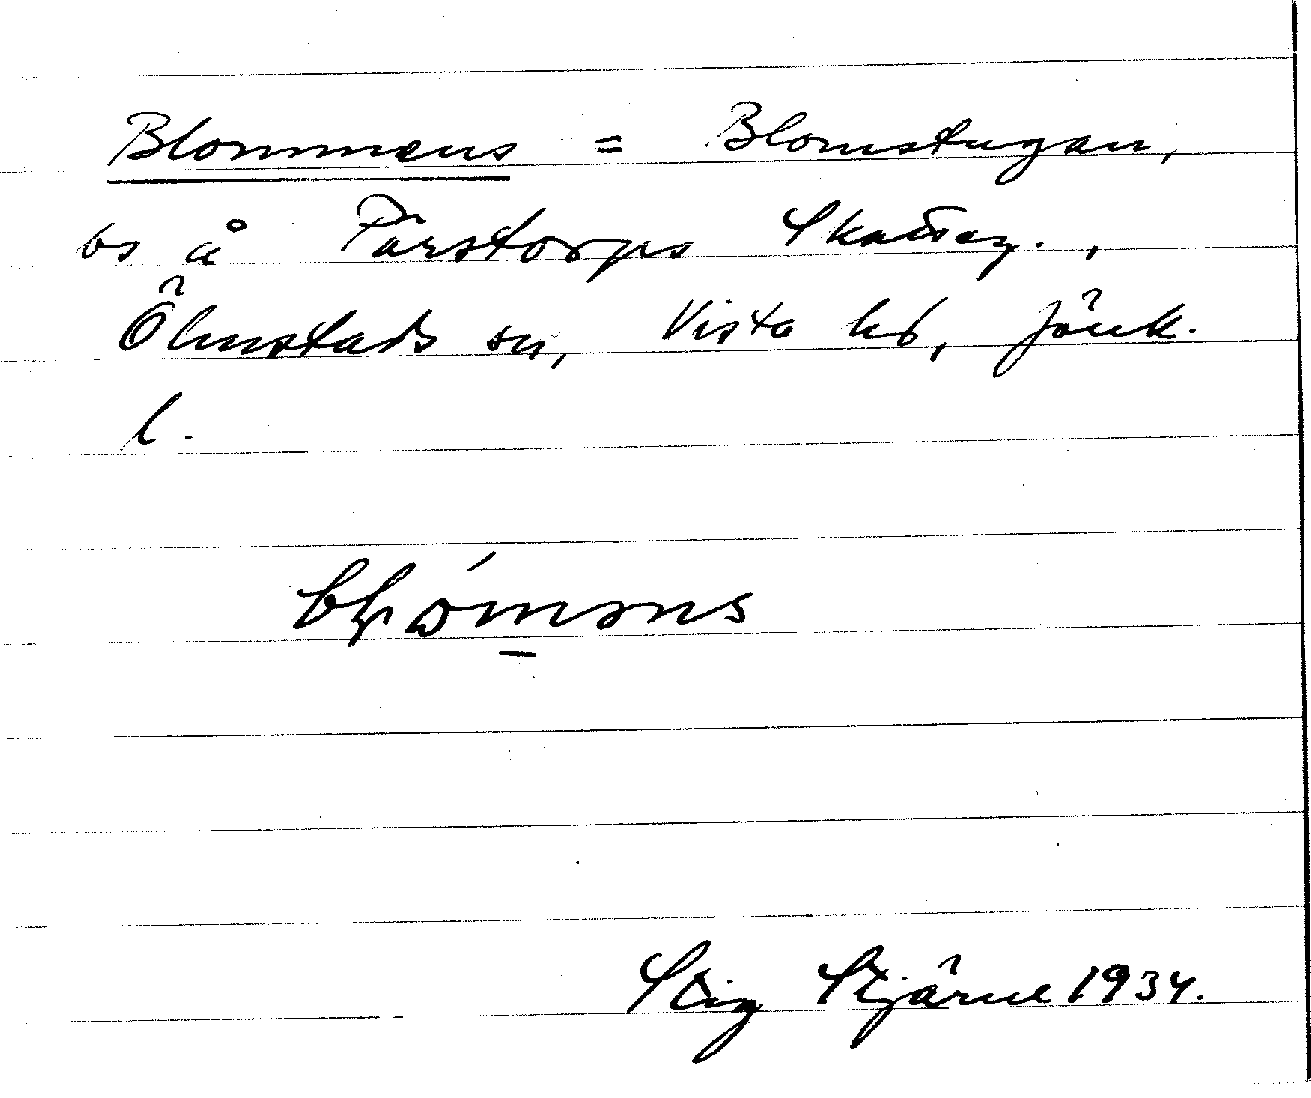 Blommens = Blomstugan,
bs å Parstorps Skatteg.,
Ölmstads sn, Vista hd, Jönk.
l.
Stig Stjärne 1934.